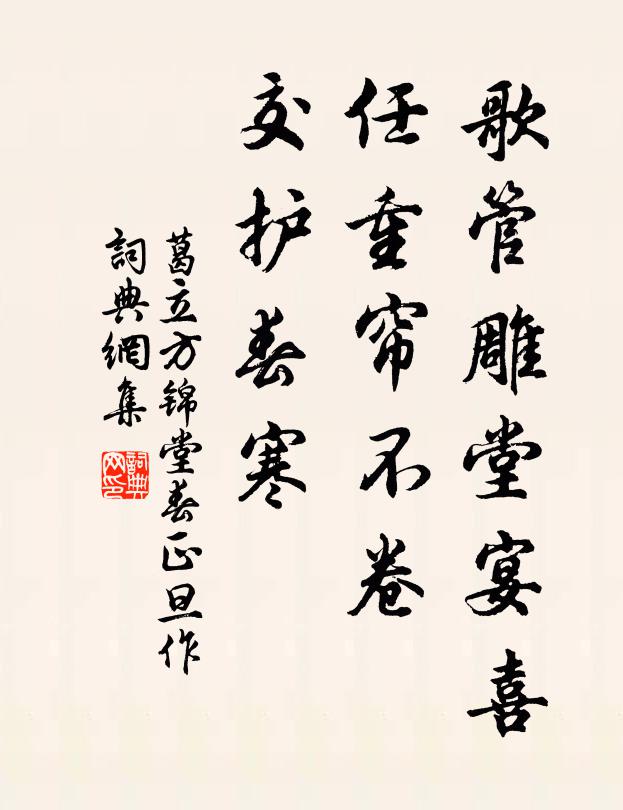 歌管雕堂宴喜
任重帘不卷
交护春寒
葛立方锦堂春正旦作
詞典網集
詞典網印